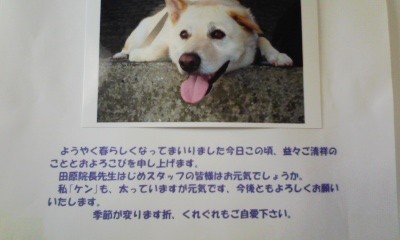 ようやく春らしくなってまいりました今日この頃、益々ご清祥の
こととおよろこびを申し上げます。
田原院長先生はじめスタッフの皆様はお元気でしょうか。
私「ケン」も、太っていますが元気です、今後ともよろしくお願い
いたします。
季節が変ります折、くれぐれもご自愛下さい。